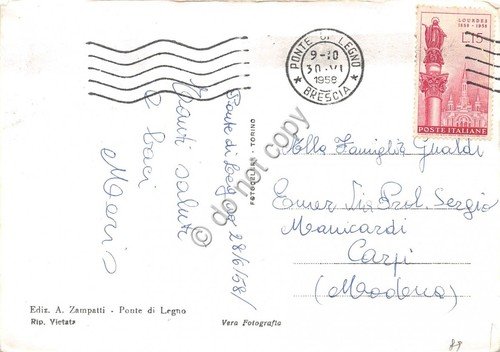 LOURDES
1858 - 1958
L.15
POSTE ITALIANE
PONTE DI LEGNO
9-10
30.VI
1958
* BRESCIA *
Ponte di Legno 28/6/58/
Tanti saluti
e baci
Mario
© do not copy
FOTOCELERE - TORINO
Alla Famiglia Gualdi
Via Prol. Sergio
Manicardi
Carpi
(Modena)
Ediz. A. Zampatti - Ponte di Legno
Rip. Vietata
Vera Fotografia
89